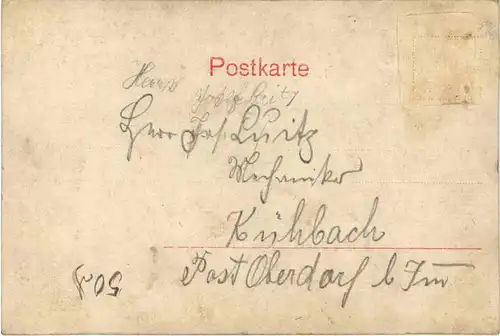 Postkarte
Herrn
Josef Luitz
Herr Jos. Luitz
Mechaniker
Kühbach
Post Oberdorf b Imm
50